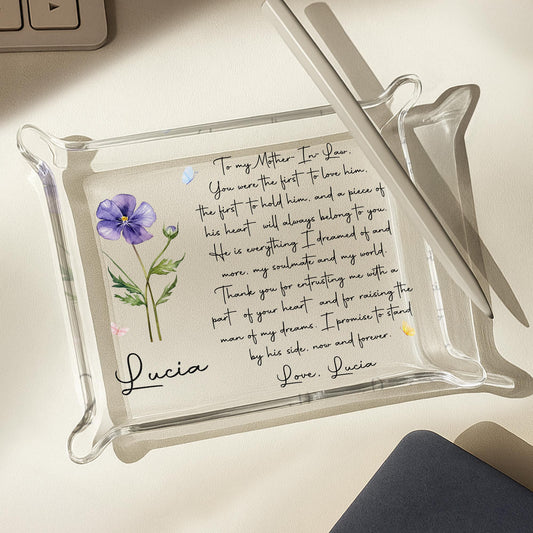 To my Mother-In-Law,
You were the first to love him,
the first to hold him, and a piece of
his heart will always belong to you.
He is everything I dreamed of and
more, my soulmate and my world.
Thank you for entrusting me with a
part of your heart and for raising the
man of my dreams. I promise to stand
by his side, now and forever.
Love, Lucia
Lucia